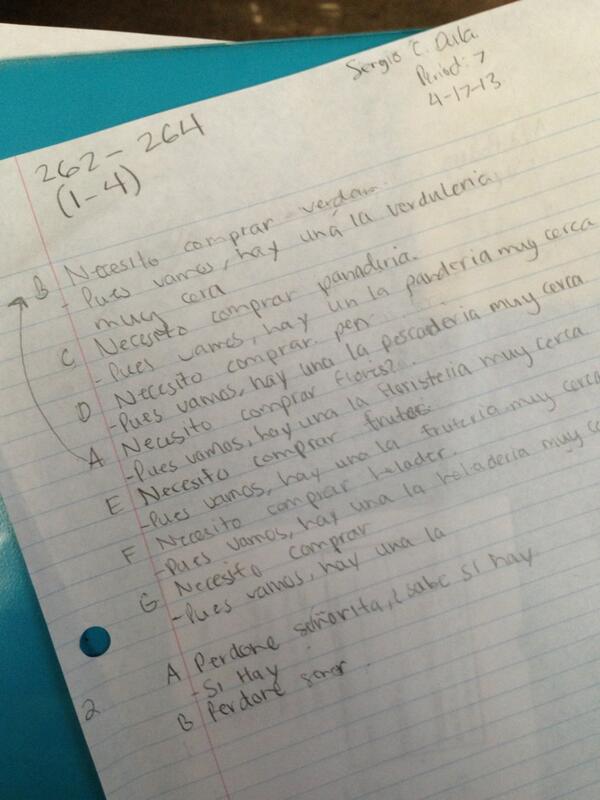 Sergio C. Avila
Period: 7
4-17-13
262-264
(1-4)
B Necesito comprar verdar.
- Pues vamos, hay una la verduleria
muy cera
C Necesito comprar panaderia.
- Pues vamos, hay un la panderia muy cerca
D Necesito comprar pen
- Pues vamos, hay una la pescaderia muy cerca
A Necesito comprar flores?.
- Pues vamos, hay una la floristeria muy cerca
E Necesito comprar frutas.
- Pues vamos, hay una la fruteria muy cerca
F Necesito comprar helader.
- Pues vamos, hay una la heladeria muy ce
G Necesito comprar
- Pues vamos, hay una la
2 A Perdone señorita, ¿sabe si hay
- Si Hay
B Perdone senor.